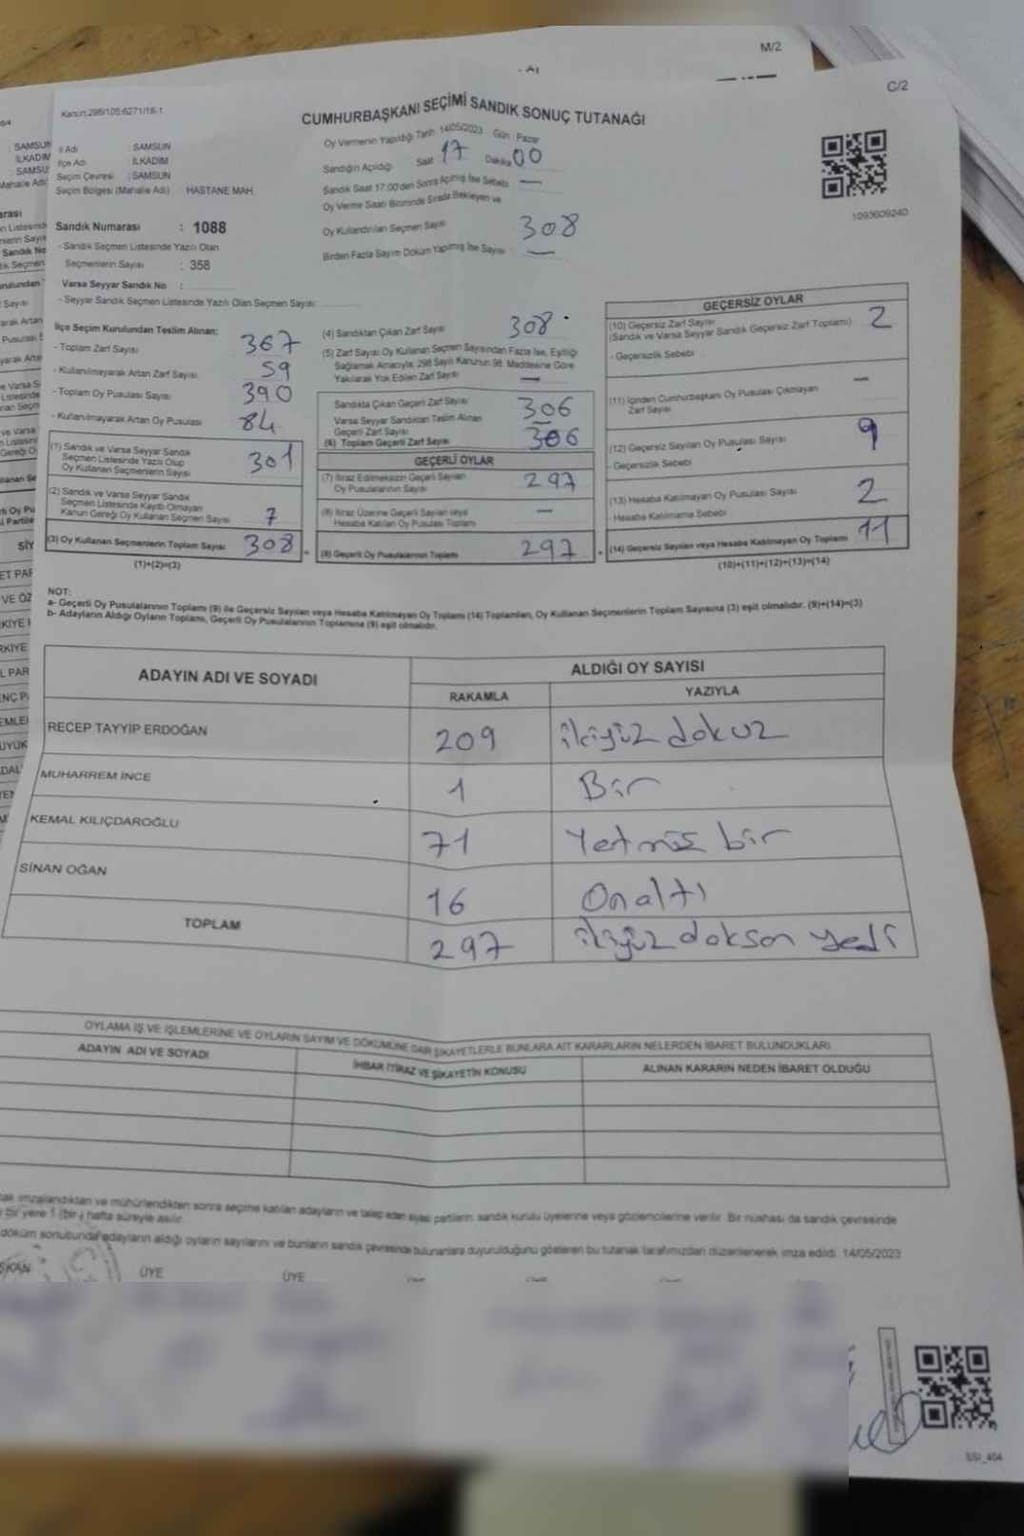 M/2
C/2
Kanun:298/105:6271/16-1
CUMHURBAŞKANI SEÇİMİ SANDIK SONUÇ TUTANAĞI
İl Adı : SAMSUN
İlçe Adı : İLKADIM
Seçim Çevresi : SAMSUN
Seçim Bölgesi (Mahalle Adı) : HASTANE MAH.
Sandık Numarası : 1088
- Sandık Seçmen Listesinde Yazılı Olan
Seçmenlerin Sayısı : 358
Varsa Seyyar Sandık No :
- Seyyar Sandık Seçmen Listesinde Yazılı Olan Seçmen Sayısı:
Oy Vermenin Yapıldığı Tarih 14/05/2023 Gün : Pazar
Sandığın Açıldığı Saat 17 Dakika 00
Sandık Saat 17.00'den Sonra Açılmış İse Sebebi —
Oy Verme Saati Bitiminde Sırada Bekleyen ve
Oy Kullandırılan Seçmen Sayısı 308
Birden Fazla Sayım Döküm Yapılmış İse Sayısı —
1093609240
İlçe Seçim Kurulundan Teslim Alınan:
- Toplam Zarf Sayısı 367
- Kullanılmayarak Artan Zarf Sayısı 59
- Toplam Oy Pusulası Sayısı 390
- Kullanılmayarak Artan Oy Pusulası 84
(1) Sandık ve Varsa Seyyar Sandık
Seçmen Listesinde Yazılı Olup
Oy Kullanan Seçmenlerin Sayısı 301
(2) Sandık ve Varsa Seyyar Sandık
Seçmen Listesinde Kayıtlı Olmayan
Kanun Gereği Oy Kullanan Seçmen Sayısı 7
(3) Oy Kullanan Seçmenlerin Toplam Sayısı 308
(1)+(2)=(3)
(4) Sandıktan Çıkan Zarf Sayısı 308
(5) Zarf Sayısı Oy Kullanan Seçmen Sayısından Fazla İse, Eşitliği
Sağlamak Amacıyla; 298 Sayılı Kanunun 98. Maddesine Göre
Yakılarak Yok Edilen Zarf Sayısı —
Sandıkta Çıkan Geçerli Zarf Sayısı 306
Varsa Seyyar Sandıktan Teslim Alınan
Geçerli Zarf Sayısı —
(6) Toplam Geçerli Zarf Sayısı 306
GEÇERLİ OYLAR
(7) İtiraz Edilmeksizin Geçerli Sayılan
Oy Pusulalarının Sayısı 297
(8) İtiraz Üzerine Geçerli Sayılan veya
Hesaba Katılan Oy Pusulası Toplamı —
(9) Geçerli Oy Pusulalarının Toplamı 297
GEÇERSİZ OYLAR
(10) Geçersiz Zarf Sayısı 2
(Sandık ve Varsa Seyyar Sandık Geçersiz Zarf Toplamı)
- Geçersizlik Sebebi
(11) İçinden Cumhurbaşkanı Oy Pusulası Çıkmayan
Zarf Sayısı —
(12) Geçersiz Sayılan Oy Pusulası Sayısı 9
- Geçersizlik Sebebi
(13) Hesaba Katılmayan Oy Pusulası Sayısı 2
- Hesaba Katılmama Sebebi
(14) Geçersiz Sayılan veya Hesaba Katılmayan Oy Toplamı 11
(10)+(11)+(12)+(13)=(14)
NOT:
a- Geçerli Oy Pusulalarının Toplamı (9) ile Geçersiz Sayılan veya Hesaba Katılmayan Oy Toplamı (14) Toplamları, Oy Kullanan Seçmenlerin Toplam Sayısına (3) eşit olmalıdır. (9)+(14)=(3)
b- Adayların Aldığı Oyların Toplamı, Geçerli Oy Pusulalarının Toplamına (9) eşit olmalıdır.
ADAYIN ADI VE SOYADI
ALDIĞI OY SAYISI
RAKAMLA YAZIYLA
RECEP TAYYİP ERDOĞAN 209 ikiyüz dokuz
MUHARREM İNCE 1 Bir
KEMAL KILIÇDAROĞLU 71 Yetmiş bir
SİNAN OĞAN 16 Onaltı
TOPLAM 297 ikiyüz doksan yedi
OYLAMA İŞ VE İŞLEMLERİNE VE OYLARIN SAYIM VE DÖKÜMÜNE DAİR ŞİKAYETLERLE BUNLARA AİT KARARLARIN NELERDEN İBARET BULUNDUKLARI
ADAYIN ADI VE SOYADI
İHBAR İTİRAZ VE ŞİKAYETİN KONUSU
ALINAN KARARIN NEDEN İBARET OLDUĞU
imzalandıktan ve mühürlendikten sonra seçime katılan adayların ve talep eden siyasi partilerin sandık kurulu üyelerine veya gözlemcilerine verilir. Bir nüshası da sandık çevresinde
bir yere 1 (bir) hafta süreyle asılır.
döküm sonucunda adayların aldığı oyların sayılarını ve bunların sandık çevresinde bulunanlara duyurulduğunu gösteren bu tutanak tarafımızdan düzenlenerek imza edildi. 14/05/2023
ÜYE ÜYE